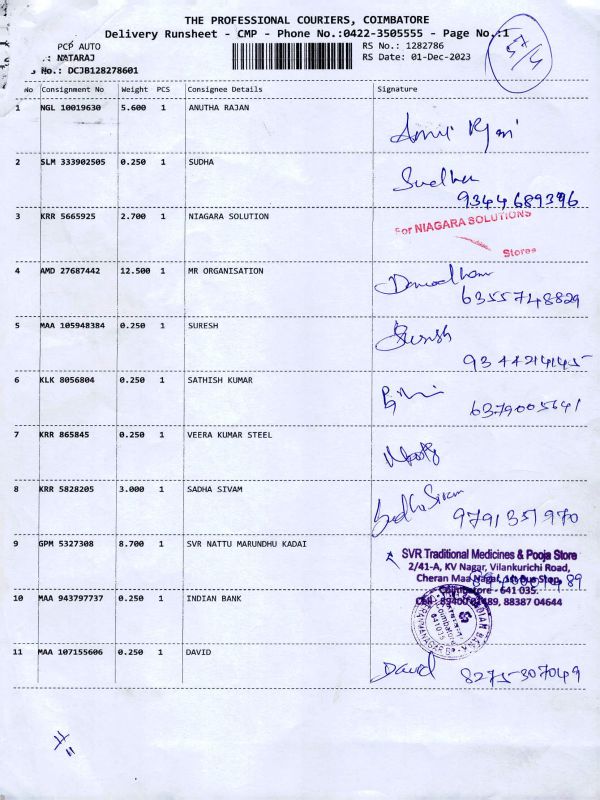 THE PROFESSIONAL COURIERS, COIMBATORE
Delivery Runsheet - CMP - Phone No.:0422-3505555 - Page No.:1
PCP AUTO RS No.: 1282786
.: NATARAJ RS Date: 01-Dec-2023
No.: DCJB128278601
57/4
No Consignment No Weight PCS Consignee Details Signature
1 NGL 10019630 5.600 1 ANUTHA RAJAN
2 SLM 333902505 0.250 1 SUDHA Sudha
9344689396
3 KRR 5665925 2.700 1 NIAGARA SOLUTION For NIAGARA SOLUTIONS
Stores
4 AMD 27687442 12.500 1 MR ORGANISATION
6355748829
5 MAA 105948384 0.250 1 SURESH Suresh
9344214145
6 KLK 8056804 0.250 1 SATHISH KUMAR
6379005641
7 KRR 865845 0.250 1 VEERA KUMAR STEEL
8 KRR 5828205 3.000 1 SADHA SIVAM Sadha Sivam
9791351970
9 GPM 5327308 8.700 1 SVR NATTU MARUNDHU KADAI SVR Traditional Medicines & Pooja Store
2/41-A, KV Nagar, Vilankurichi Road,
Cheran Maa Nagar, 1st Bus Stop,
Coimbatore - 641 035.
Cell: 89400 01489, 88387 04644
10 MAA 943797737 0.250 1 INDIAN BANK INDIAN BANK
11 MAA 107155606 0.250 1 DAVID David 8275-307049
11